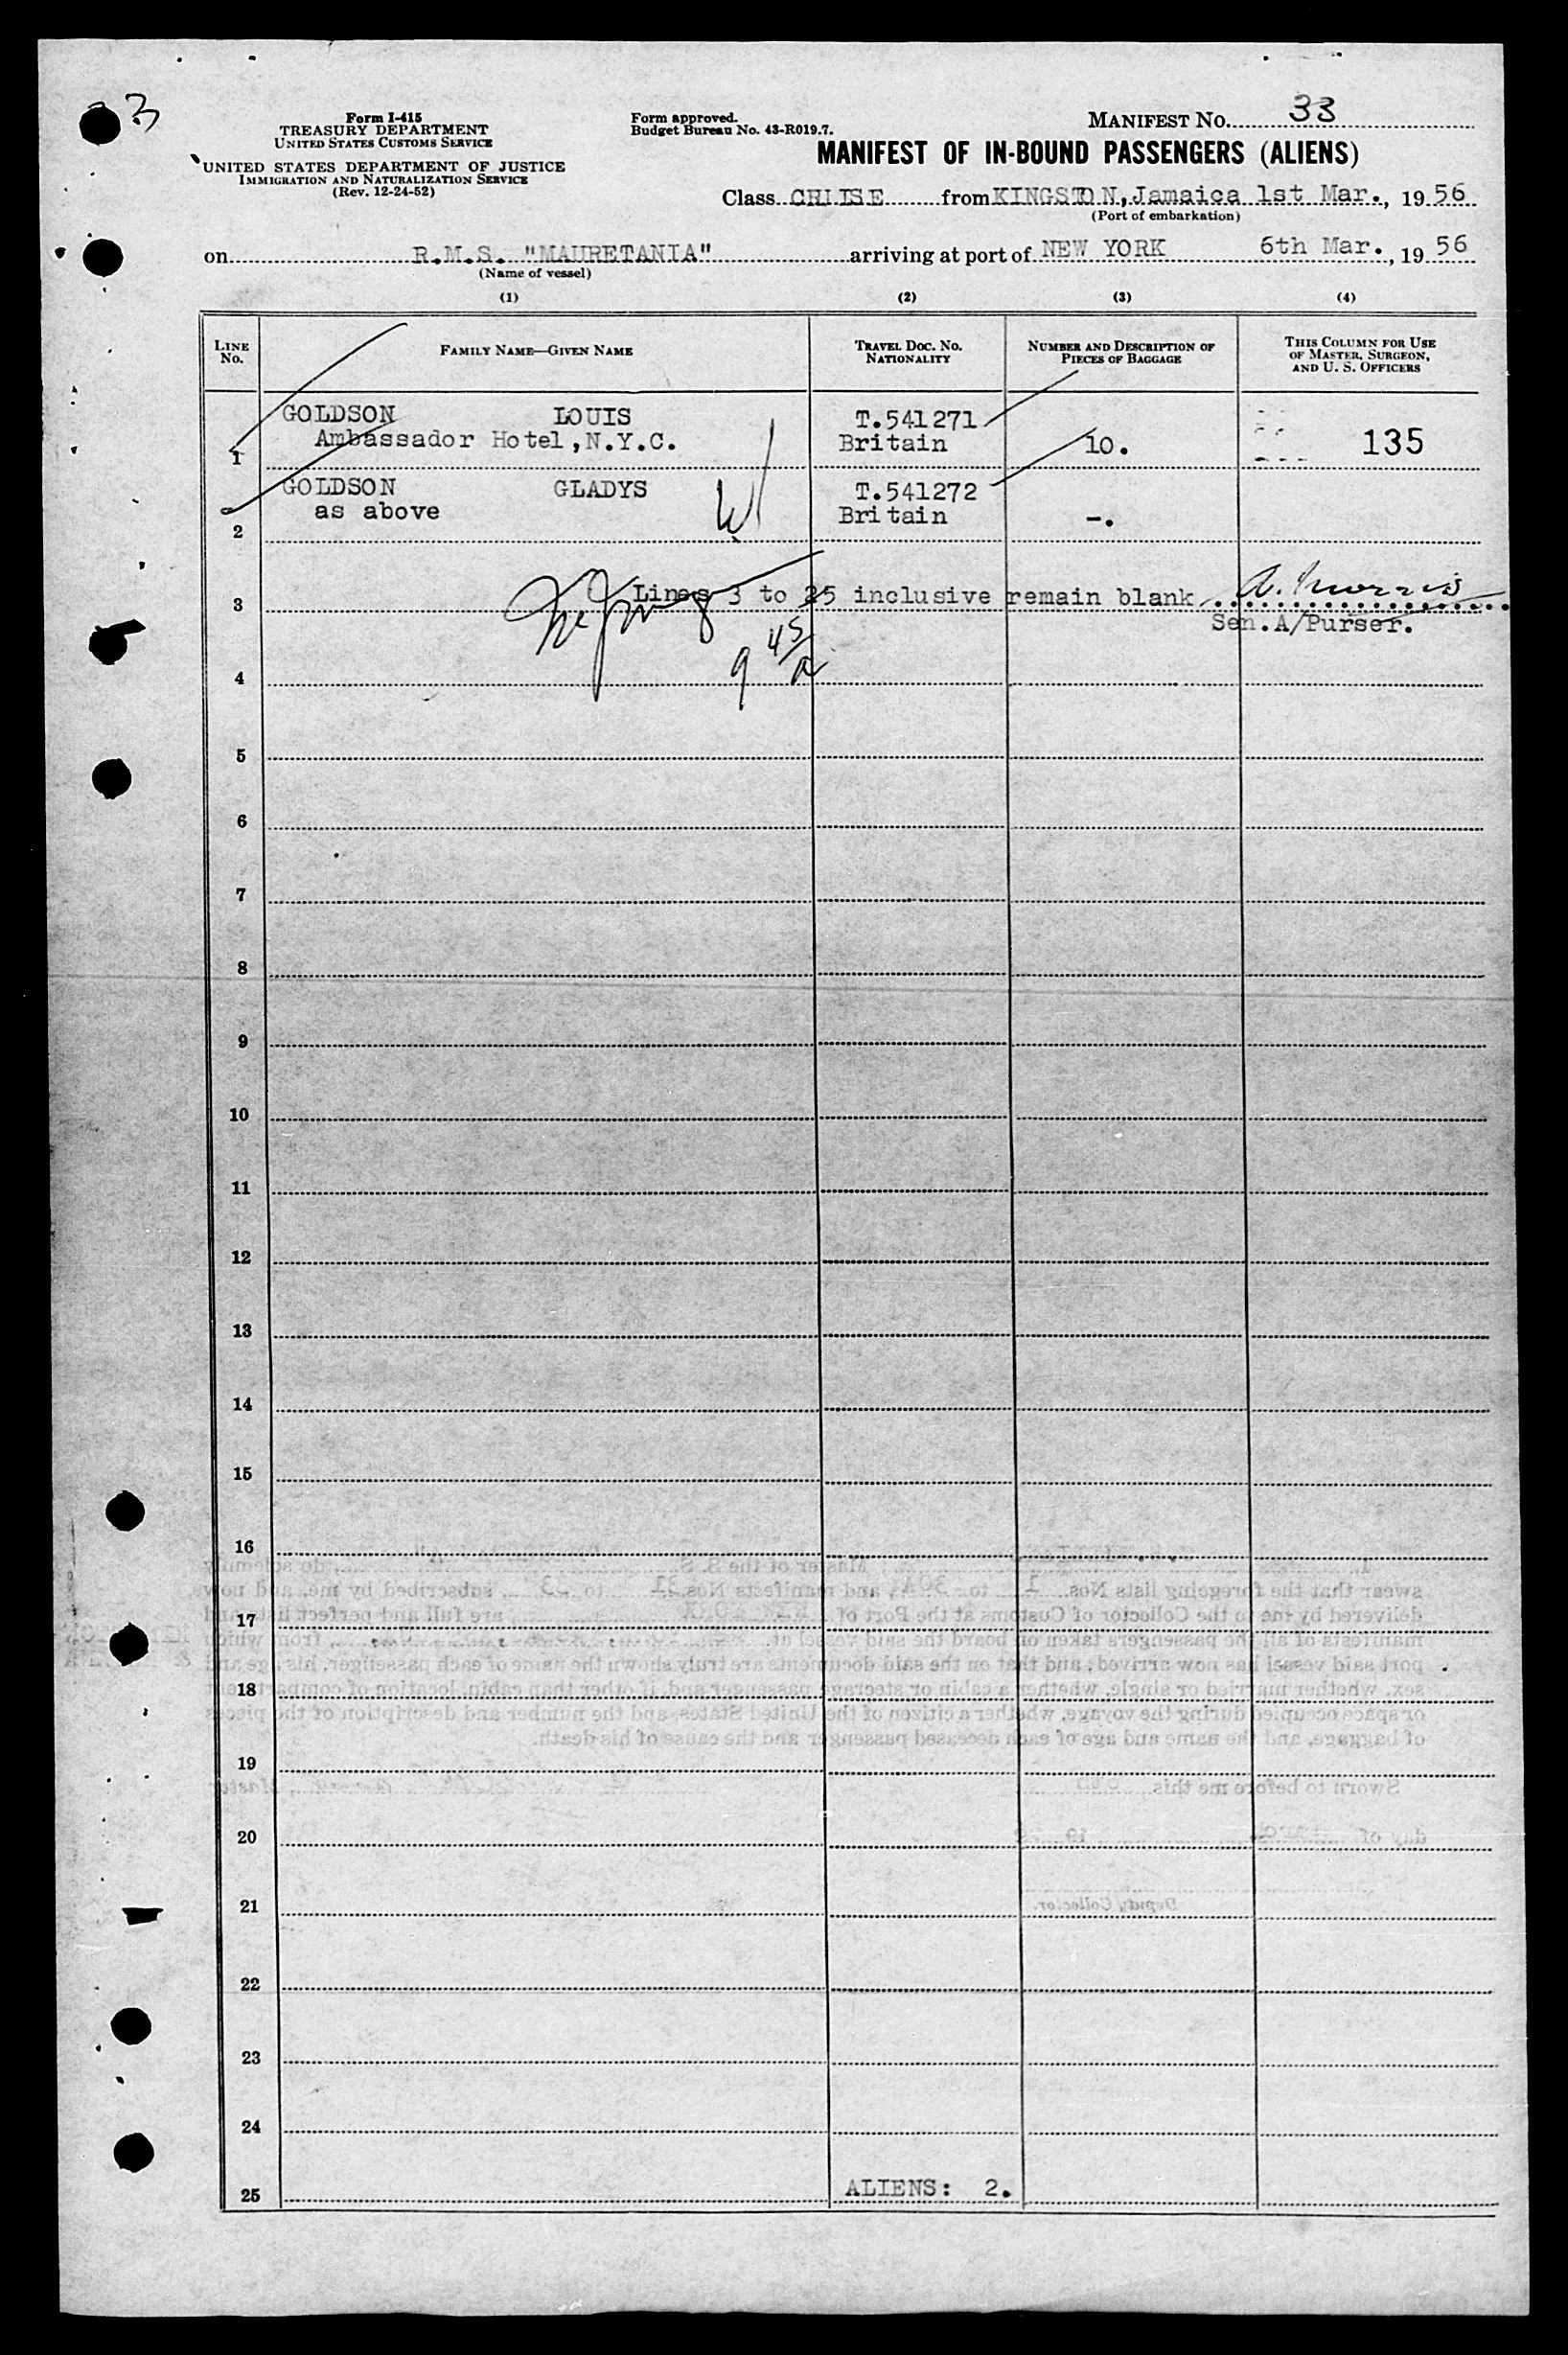 3
Form I-415
TREASURY DEPARTMENT
UNITED STATES CUSTOMS SERVICE
UNITED STATES DEPARTMENT OF JUSTICE
IMMIGRATION AND NATURALIZATION SERVICE
(Rev. 12-24-52)
Form approved.
Budget Bureau No. 43-R019.7.
MANIFEST NO. 33
MANIFEST OF IN-BOUND PASSENGERS (ALIENS)
Class CRUISE from KINGSTON, Jamaica 1st Mar., 1956
(Port of embarkation)
on R.M.S. "MAURETANIA" arriving at port of NEW YORK 6th Mar., 1956
(Name of vessel)
(1) (2) (3) (4)
LINE No. FAMILY NAME—GIVEN NAME TRAVEL DOC. NO. NATIONALITY NUMBER AND DESCRIPTION OF PIECES OF BAGGAGE THIS COLUMN FOR USE OF MASTER, SURGEON, AND U. S. OFFICERS
GOLDSON LOUIS T.541271
1 Ambassador Hotel, N.Y.C. Britain 10. 135
GOLDSON GLADYS T.541272
as above Britain -.
2
3 Lines 3 to 25 inclusive remain blank A. Morris
Sen. A/Purser.
9 45/a
4
5
6
7
8
9
10
11
12
13
14
15
16
17
18
19
20
21
22
23
24
25 ALIENS: 2.